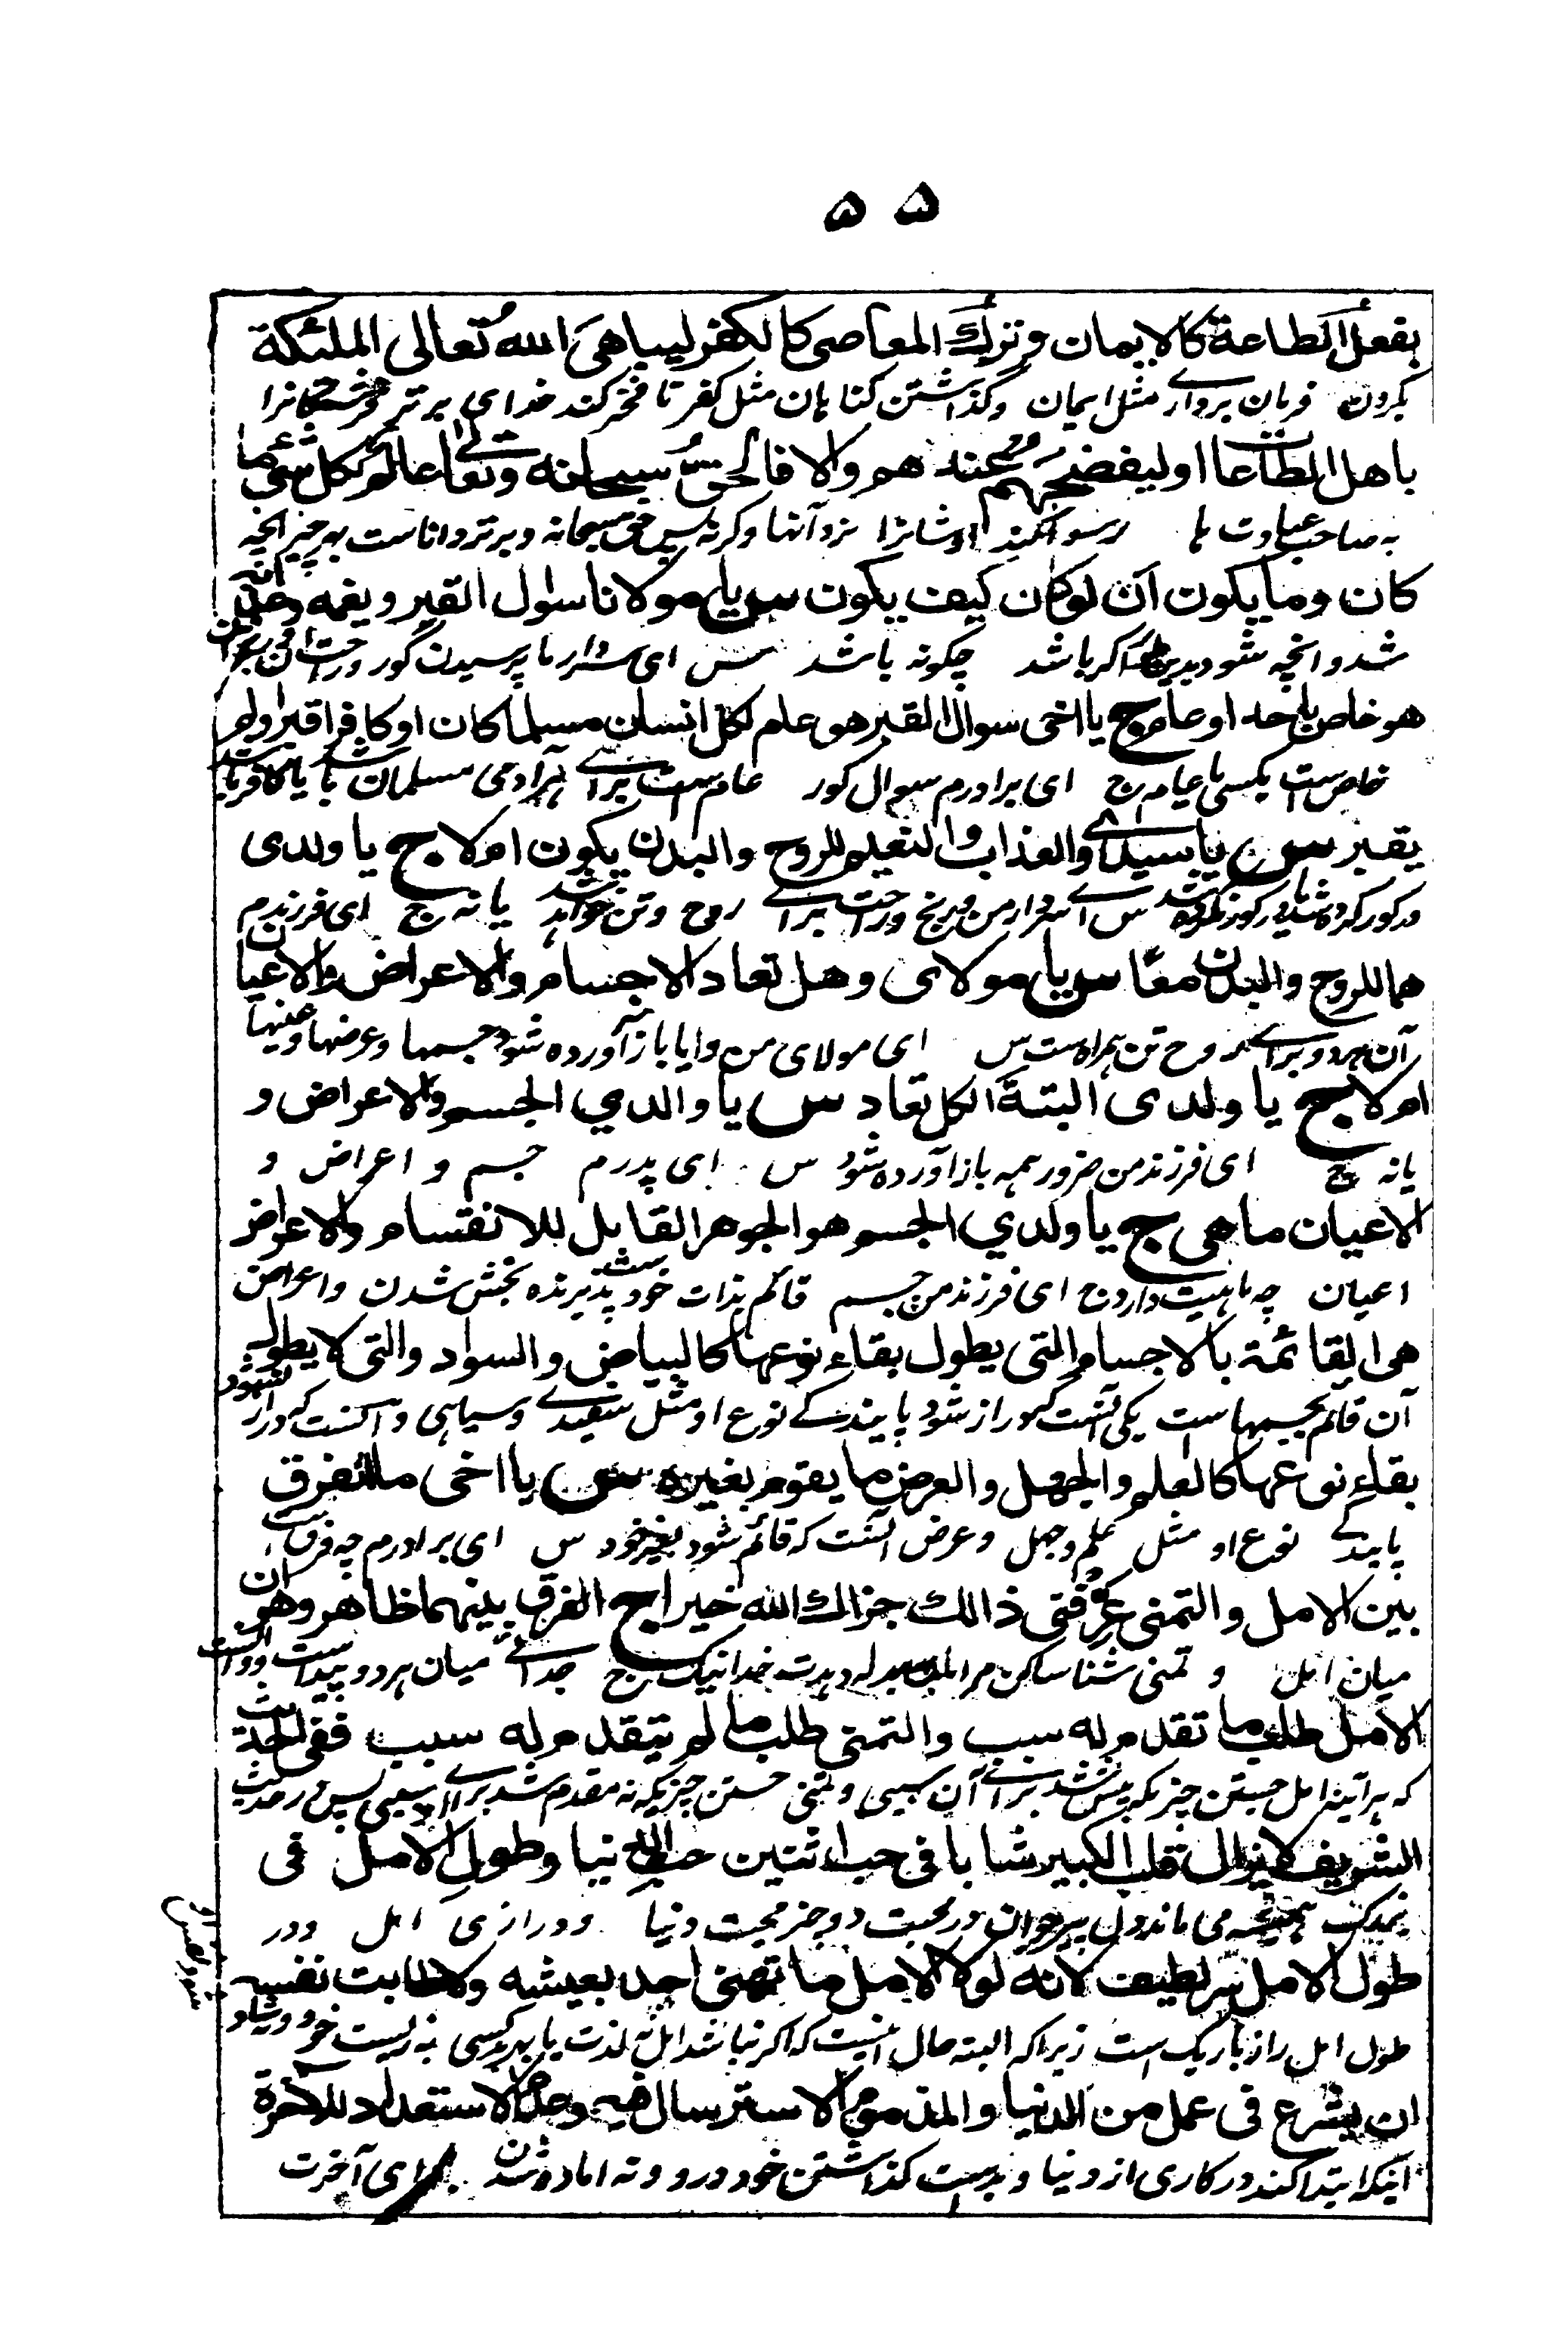 ۵۵
بفعل الطاعة كالايمان وترك المعاصى كالكفر ليباهى الله تعالى الملئكة
بكردن فرمان بردارے مثل ايمان وگذاشتن گناہان مثل كفر تا فخر كند خداى برتر فرشتگانرا
باهل الطاعات اوليفضحهم عندهم والا فالحق سبحانه وتعالے عالم بكل شئ مما
به صاحب عبادت ہا رسوا كند اوشانرا نزد آنها وگرنه پس حق سبحانه وبرتر داناست بہر چيز انچه
كان وما يكون ان لو كان كيف يكون س يا مولانا سوال القبر ونعيمه وعذابه
شد وانچه شود اگر باشد چگونه باشد س اى سردار ما پرسيدن گور وراحت آن
هو خاص باحد او عام ج يا اخى سوال القبر هو علم لكل انسان مسلما كان او كافرا قبر اولم
خاص ست بكسى يا عام ج اى برادرم سوال گور عام ست براے ہر آدمى مسلمان باشد يا كافر باشد
يقبر س يا سيدے والعذاب والنعيم للروح والبدن يكون ام لا ج يا ولدى
در گور كرده شد يا در گور نكرده شد س اے سردار من رنج وراحت براے روح وتن خواہد شد يا نه ج اى فرزندم
هما للروح والبدن معًا س يا مولاى وهل تعاد الاجسام والاعراض والاعيان
آن ہردو براے روح تن ہمراه ست س اى مولاى من وآيا باز آورده شود جسمها وعرضها وعينها
ام لا ج يا ولدى البتة الكل تعاد س يا والدي الجسم والاعراض و
يا نه ج اى فرزند من ضرور ہمه باز آورده شود س اى پدرم جسم و اعراض و
الاعيان ما هى ج يا ولدي الجسم هو الجوهر القابل للانقسام والاعراض
اعيان چه ماہيت دارد ج اى فرزند من جسم قائم بذات خود ست پذيرنده بخش شدن واعراض
هى القائمة بالاجسام التى يطول بقاء نوعها كالبياض والسواد والتى لا يطول
آن قائم بجسمها است يكى آنست كه دراز شود پايندگے نوع او مثل سفيدے وسياہى وآنست كه دراز نشود
بقاء نوعها كالعلم والجهل والعرض ما يقوم بغيره س يا اخى ما الفرق
پايندگے نوع او مثل علم وجہل وعرض آنست كه قائم شود بغير خود س اى برادرم چه فرق ست
بين الامل والتمنى عرفنى ذالك جزاك الله خيرا ج الفرق بينهما ظاهر وهو ان
ميان امل و تمنى شناسا كن مرا بدله دہدت خدا نيك ج جدائے ميان ہردو پيداست وآن آنست
الامل طلب ما تقدم له سبب والتمنى طلب ما لم يتقدم له سبب ففى الحديث
كه ہر آئينه امل جستن چيزيكه پيش شد براے آن سببى وتمنى جستن چيزيكه نه مقدم شد براے او سببى پس در حديث
الشريف لا يزال قلب الكبير شابا فى حب اثنتين حب الدنيا وطول الامل فى
ہميشه مى ماند دل پير جوان در محبت دو چيز محبت دنيا ودرازى امل ودر
طول الامل سر لطيف لانه لولا الامل ما تهنى احد بعيشه ولا طابت نفسه
طول امل راز باريك است زيراكه البته حال اينست كه اگر نباشد امل نه لذت يابد كسى به زيست خود
ان يشرع فى عمل من الدنيا والمذموم الاسترسال فيه وعدم الاستعداد للآخرة
اينكه ابتدا كند در كارى از دنيا و گذاشتن خود درو ونه آماده شدن براى آخرت